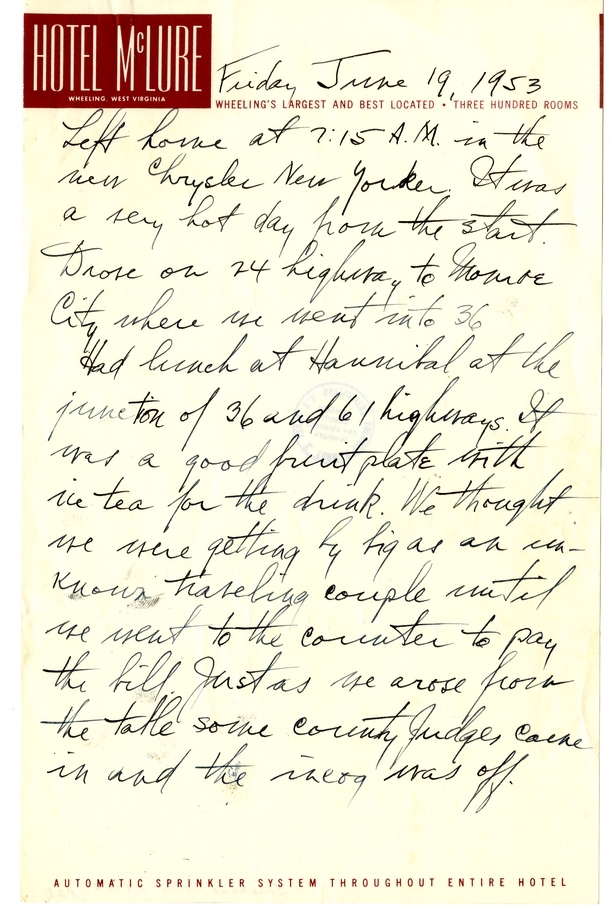 HOTEL McLURE
WHEELING, WEST VIRGINIA
Friday June 19, 1953
WHEELING'S LARGEST AND BEST LOCATED • THREE HUNDRED ROOMS
Left home at 7:15 A.M. in the
new Chrysler New Yorker. It was
a very hot day from the start.
Drove on 24 highway to Monroe
City where we went into 36
Had lunch at Hannibal at the
junction of 36 and 61 highways. It
was a good fruit plate with
ice tea for the drink. We thought
we were getting by big as an un-
known traveling couple until
we went to the counter to pay
the bill. Just as we arose from
the table some county judges came
in and the incog was off.
AUTOMATIC SPRINKLER SYSTEM THROUGHOUT ENTIRE HOTEL